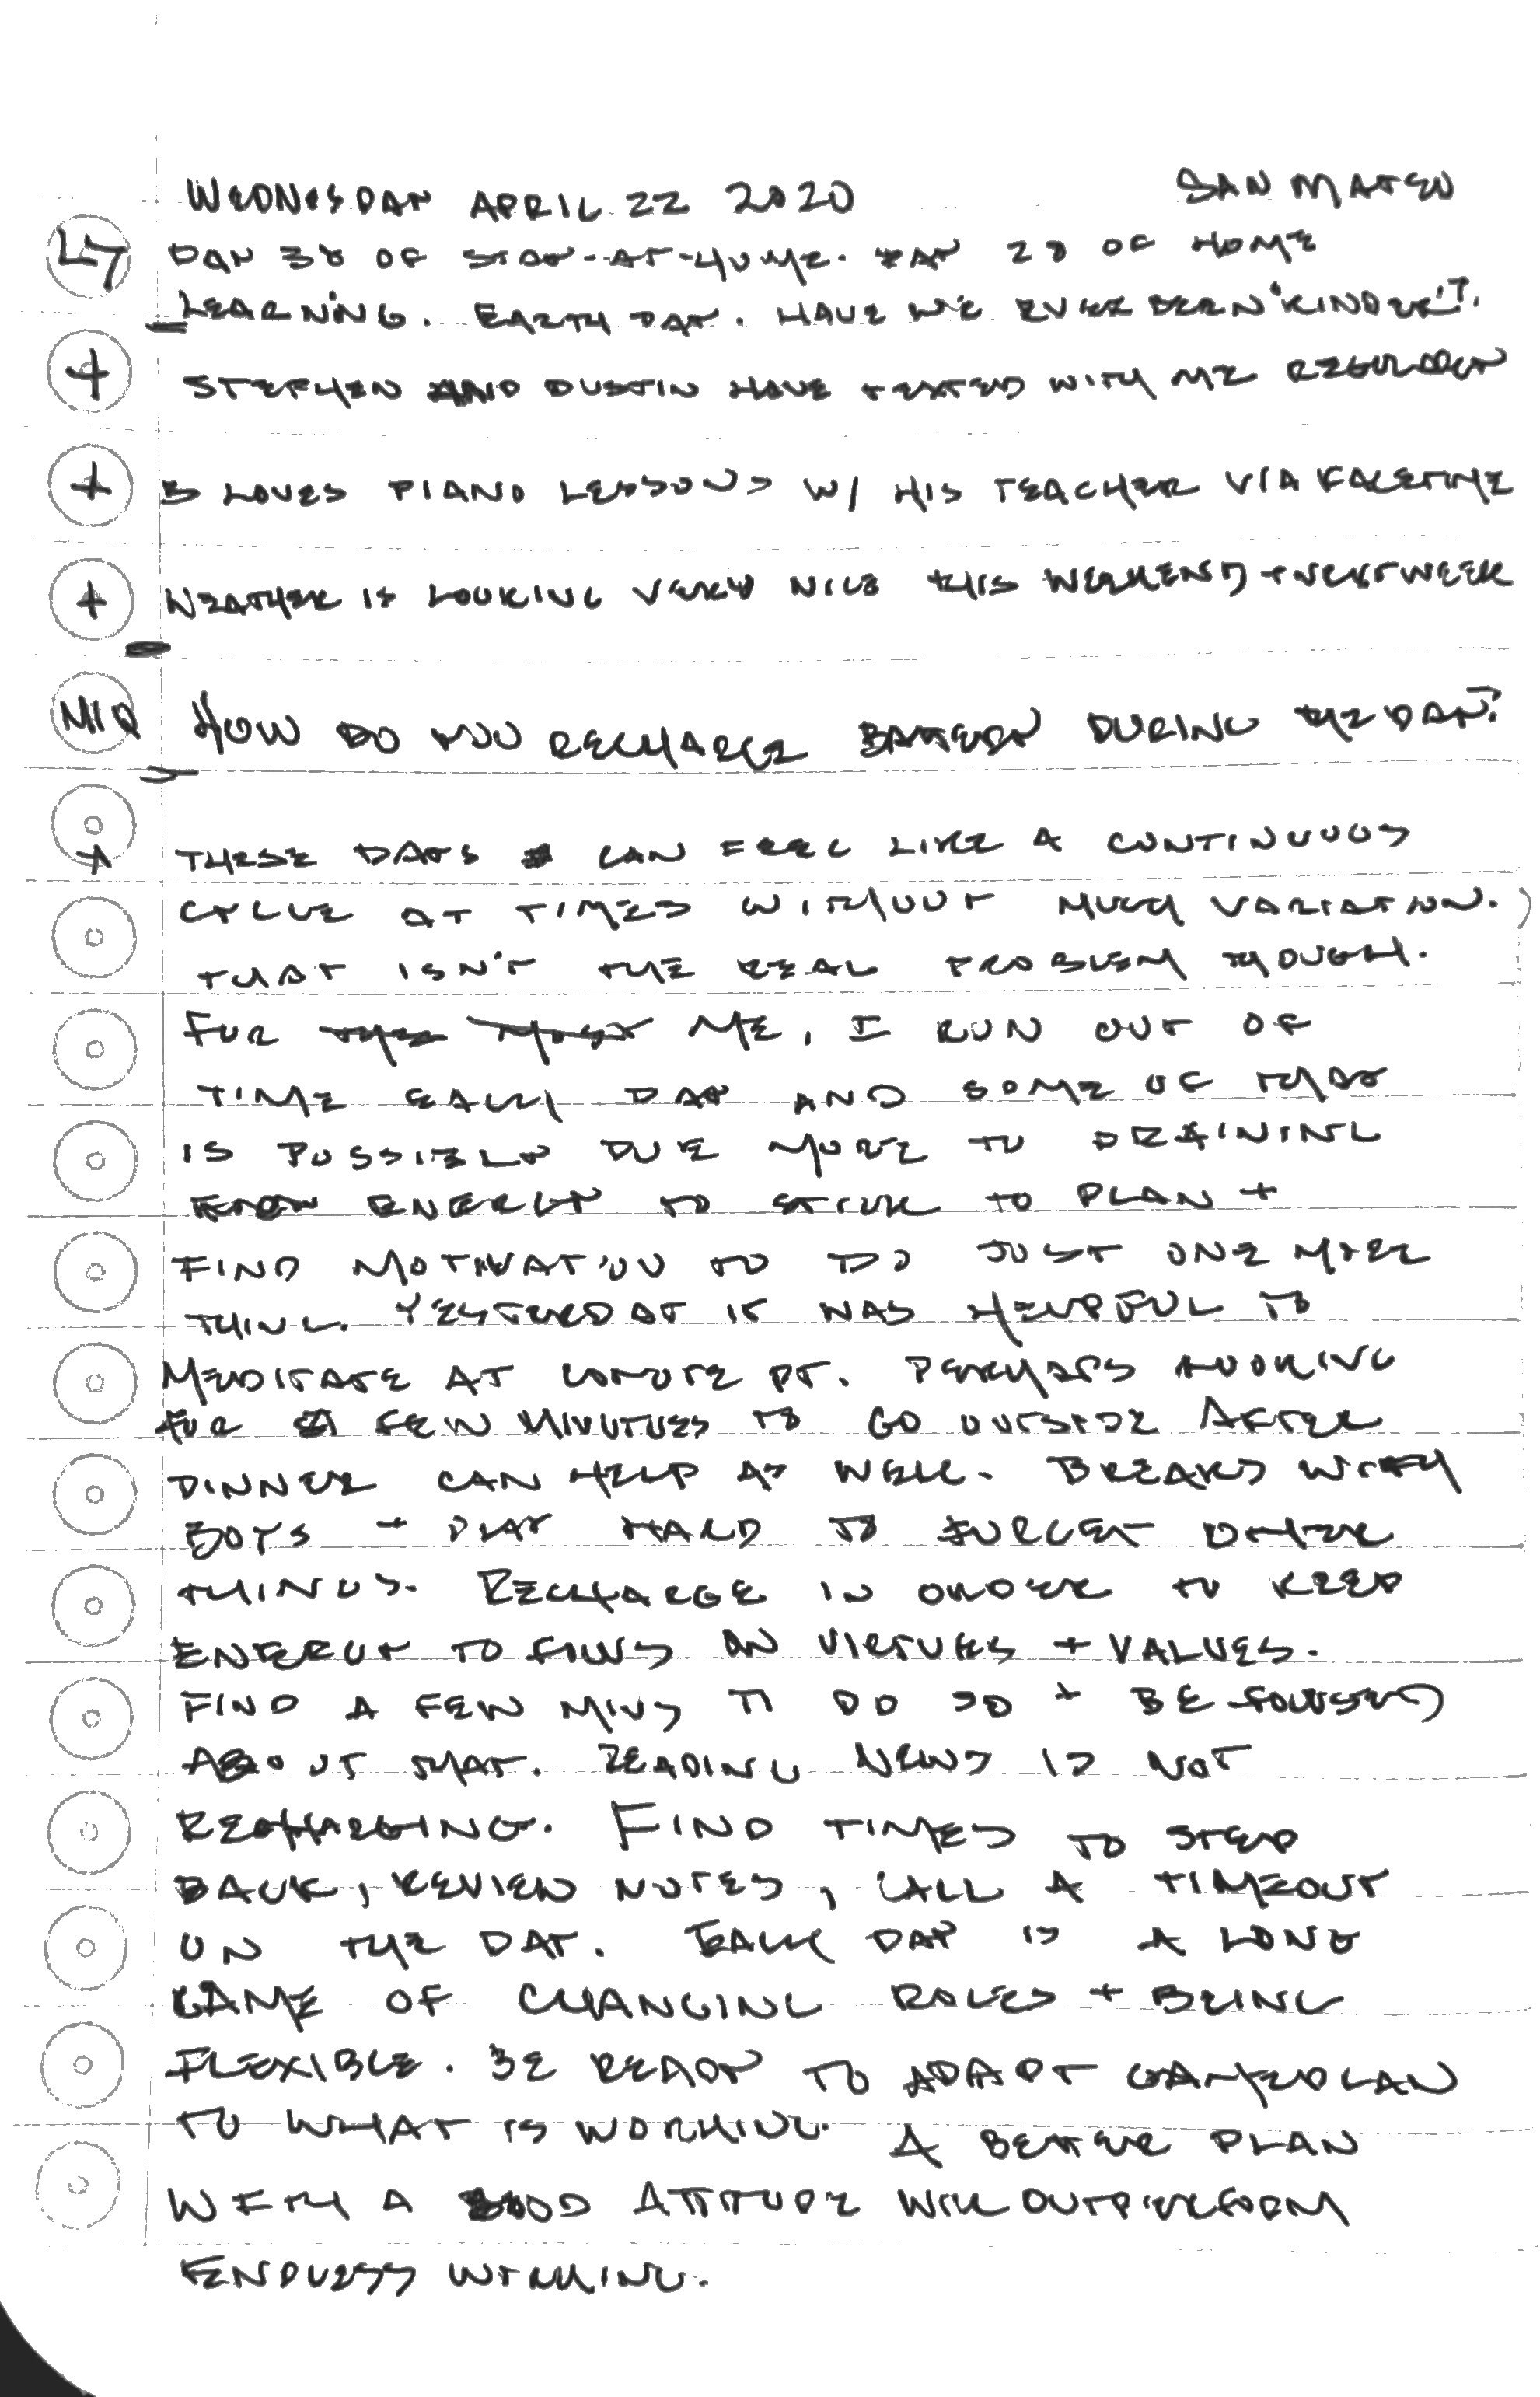 WEDNESDAY APRIL 22 2020 SAN MATEO
LT DAY 38 OF STAY-AT-HOME. DAY 28 OF HOME
LEARNING. EARTH DAY. HAVE WE EVER BEEN "KINDER"?
+ STEPHEN AND DUSTIN HAVE TEXTED WITH ME REGULARLY
+ B LOVES PIANO LESSONS W/ HIS TEACHER VIA FACETIME
+ WEATHER IS LOOKING VERY NICE THIS WEEKEND + NEXT WEEK
MIQ HOW DO YOU RECHARGE BATTERY DURING THE DAY?
+ THESE DAYS CAN FEEL LIKE A CONTINUOUS
CYCLE AT TIMES WITHOUT MUCH VARIATION.
THAT ISN'T THE REAL PROBLEM THOUGH.
FOR ME, I RUN OUT OF
TIME EACH DAY AND SOME OF THAT
IS POSSIBLY DUE MORE TO DRAINING
ENERGY TO STICK TO PLAN +
FIND MOTIVATION TO DO JUST ONE MORE
THING. YESTERDAY IT WAS HELPFUL TO
MEDITATE AT COYOTE PT. PERHAPS LOOKING
FOR A FEW MINUTUES TO GO OUTSIDE AFTER
DINNER CAN HELP AS WELL. BREAKS WITH
BOYS + PLAY HARD TO FORGET OTHER
THINGS. RECHARGE IN ORDER TO KEEP
ENERGY TO FOCUS ON VIRTUES + VALUES.
FIND A FEW MINS TO DO SO + BE FOCUSED
ABOUT THAT. READING NEWS IS NOT
RECHARGING. FIND TIMES TO STEP
BACK, REVIEW NOTES, CALL A TIMEOUT
ON THE DAY. EACH DAY IS A LONG
GAME OF CHANGING ROLES + BEING
FLEXIBLE. BE READY TO ADAPT GAMEPLAN
TO WHAT IS WORKING. A BETTER PLAN
WITH A GOOD ATTITUDE WILL OUTPERFORM
ENDLESS WILLING.